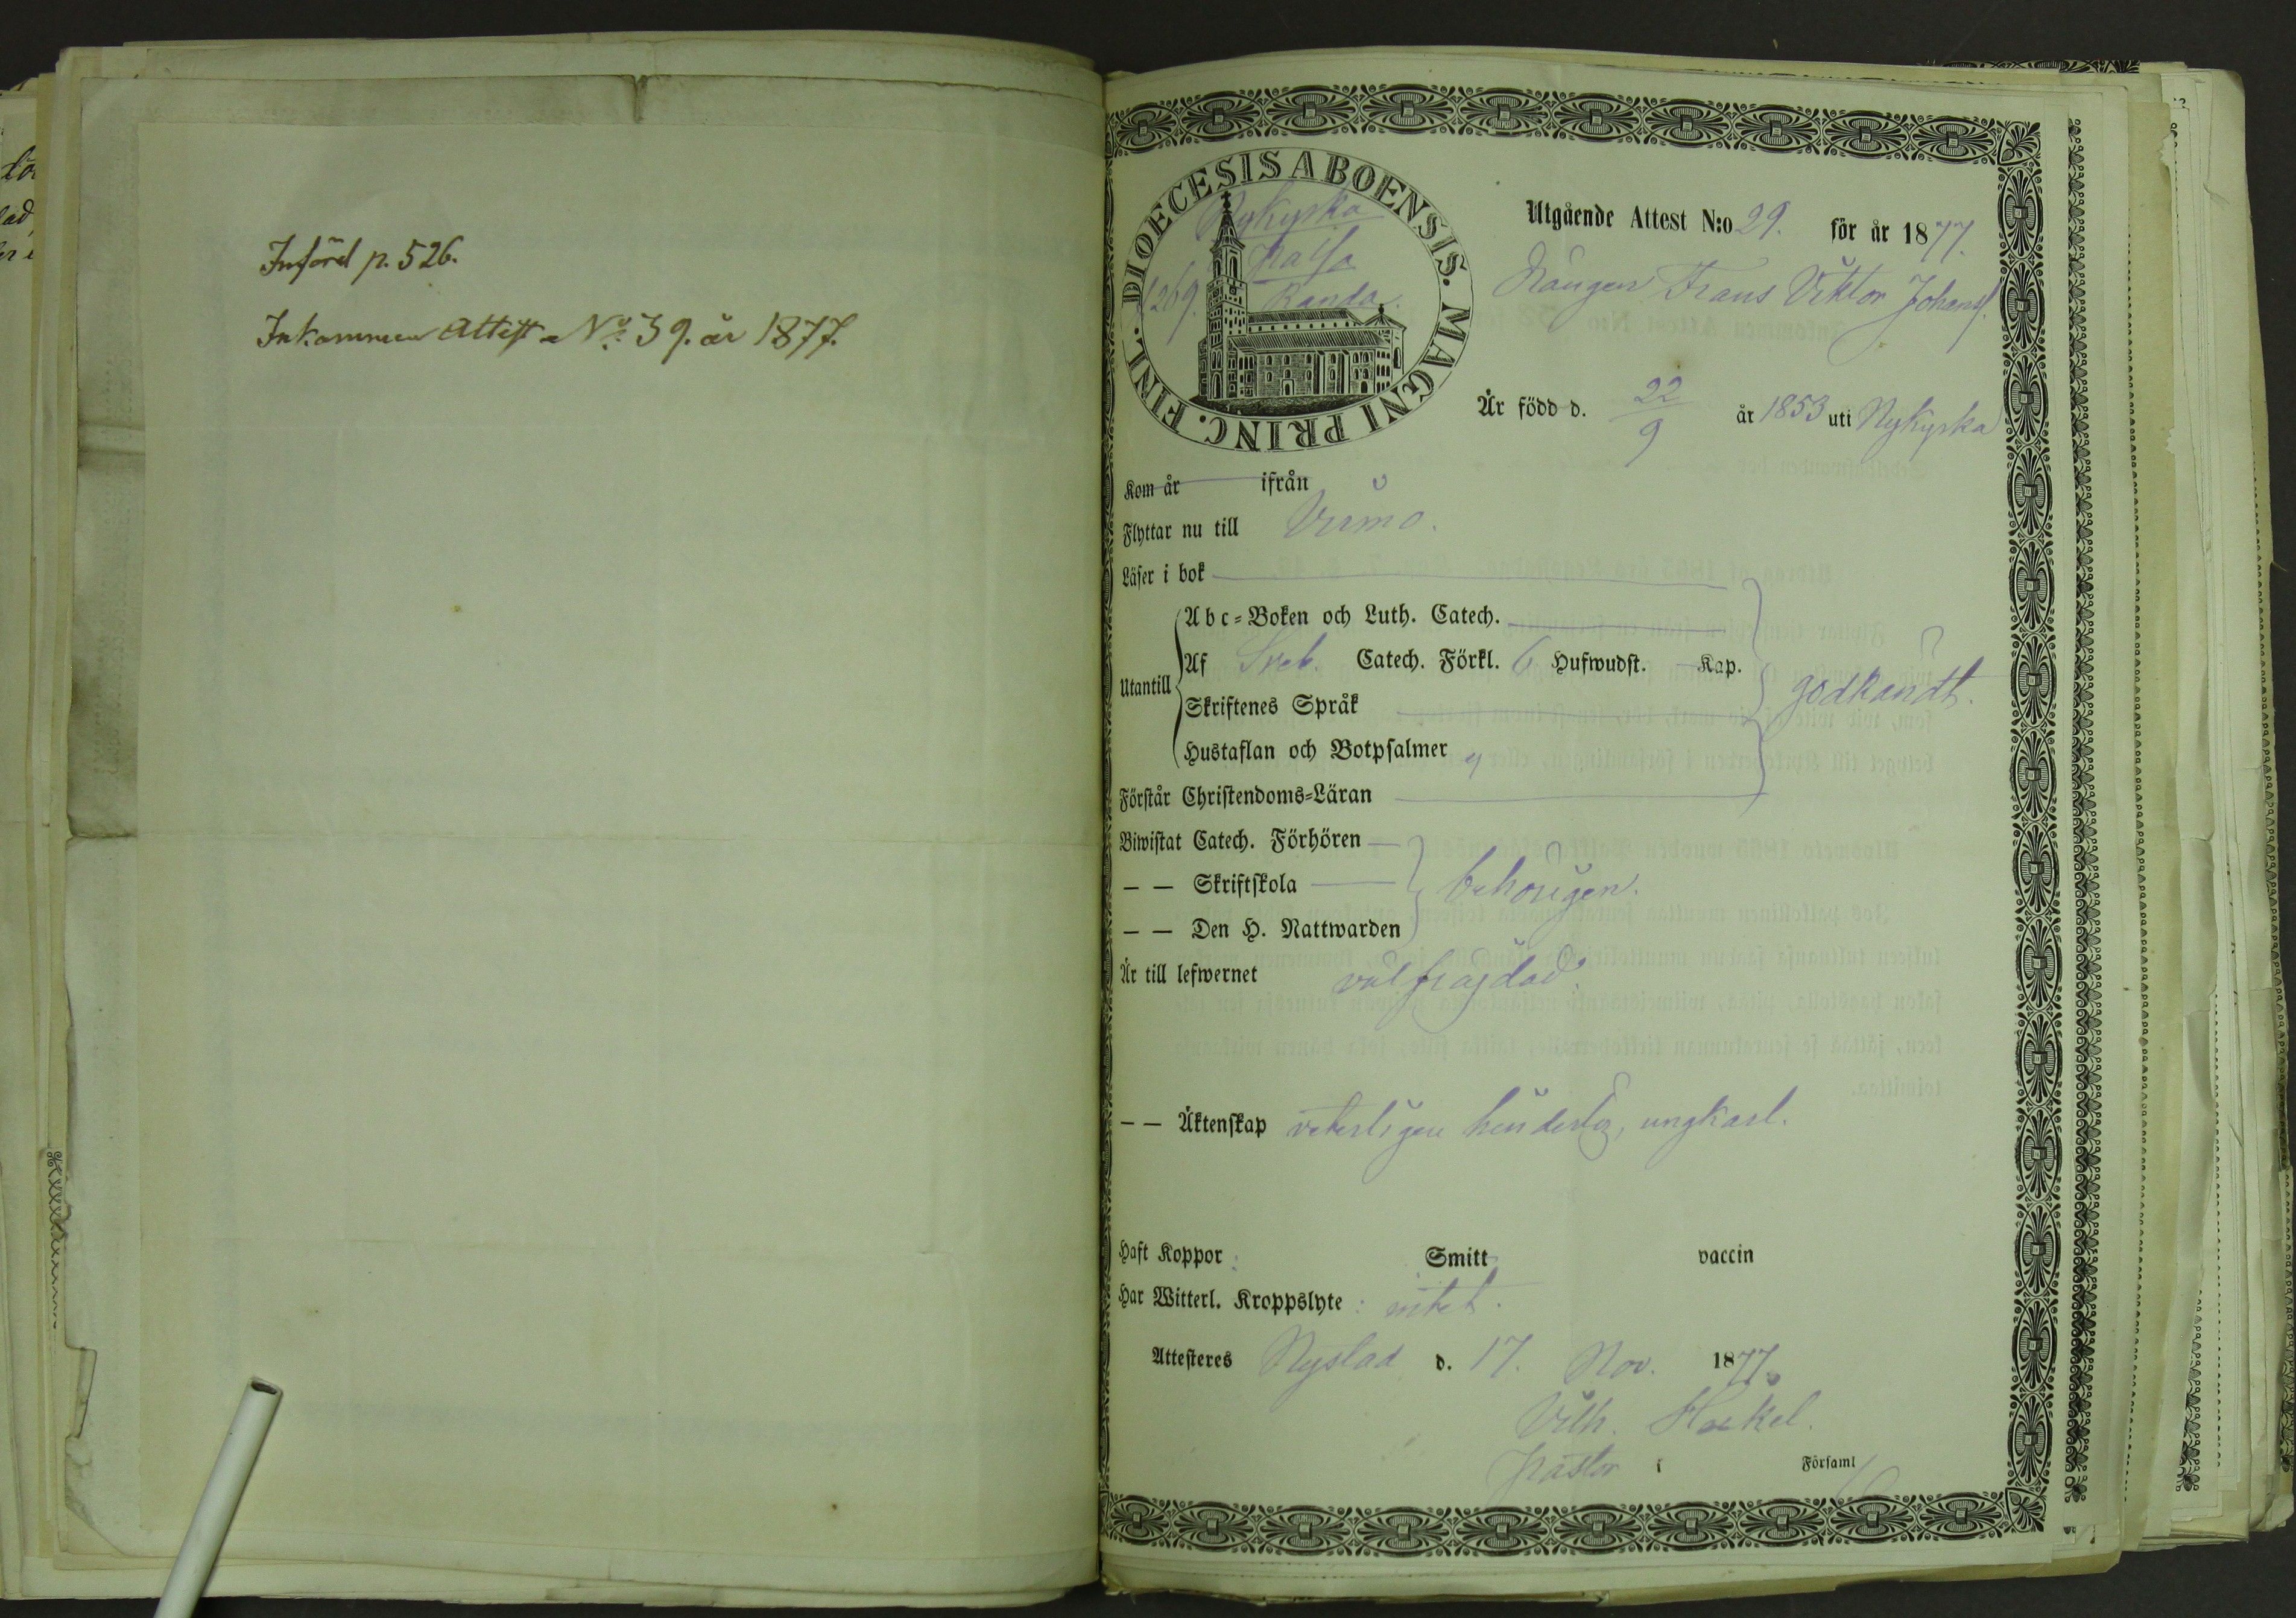 Införd p. 526.
Inkommen Attest No 39. år 1877.
FINL. DIOECESIS ABOENSIS. MAGNI PRINC.
Nykyrka
269. Randa.
Utgående Attest N:o 29. för år 1877.
Drängen Frans Viktor Johanss.
Är född d. 22/9 år 1853 uti Nykyrka
Kom år ifrån
Flyttar nu till Virmo.
Läser i bok
Utantill
Abc-Boken och Luth. Catech.
Af Sveb. Catech. Förkl. 6 Hufwudst. Kap.
godkändt.
Skriftenes Språk
Hustaflan och Botpsalmer
Förstår Christendoms-Läran
Biwistat Catech. Förhören
— — Skriftskola behörigen.
— — Den H. Nattwarden
Är till lefwernet välfrägdad.
— — Äktenskap veterligen hinderlös, ungkarl.
Haft Koppor Smitt vaccin
Har Witterl. Kroppslyte: intet.
Attesteres Nystad d. 17. Nov. 1877.
Vilh.
Pastor i Församl